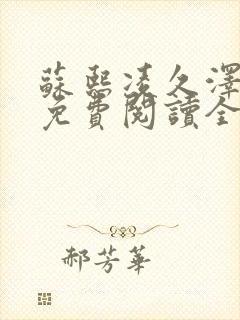 蘇熙凌久澤
免費閱讀全
郝芳華